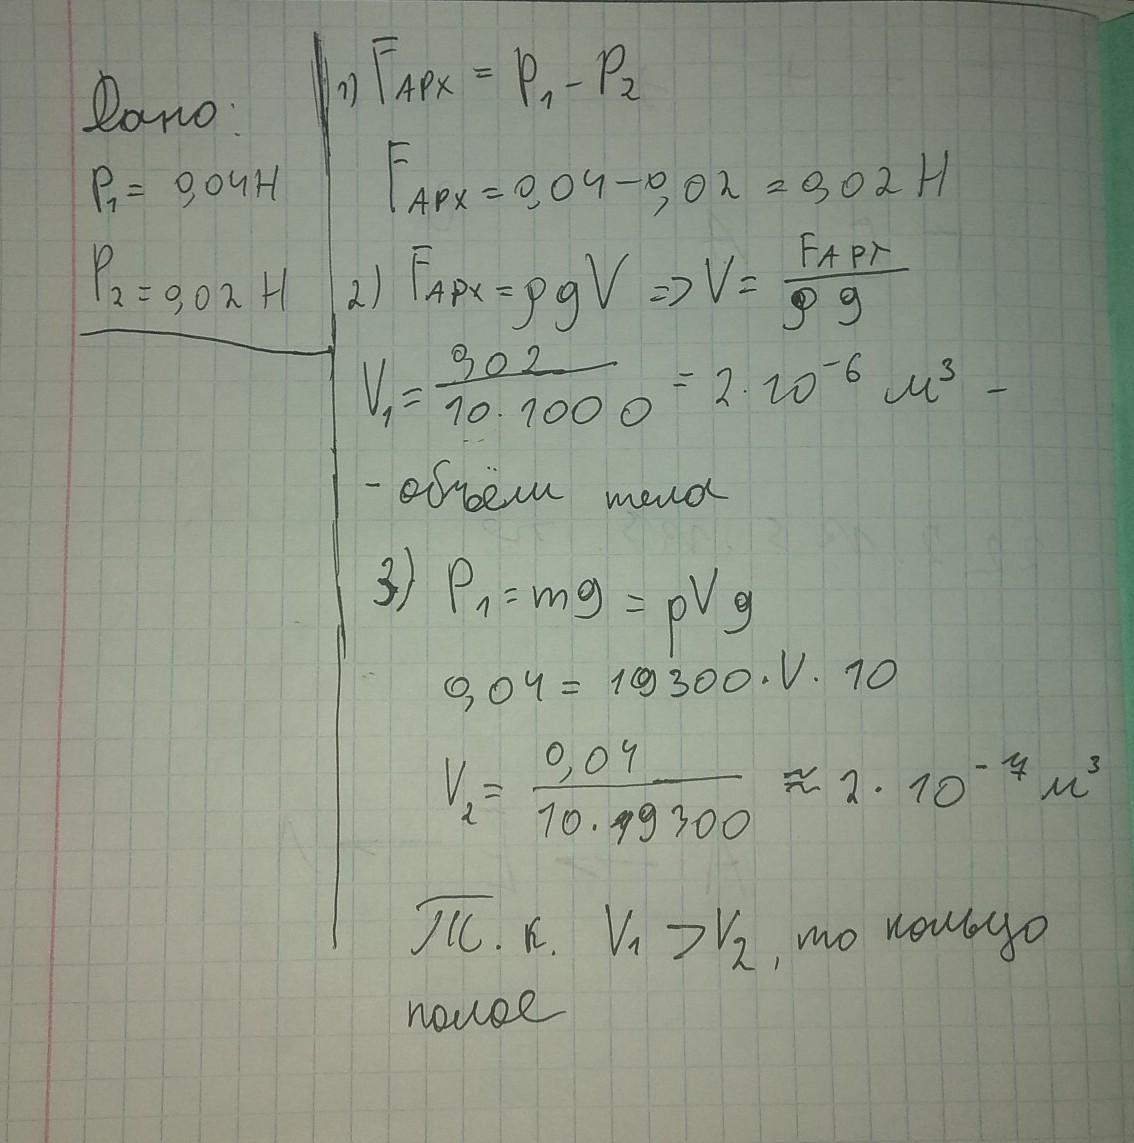 Дано:
P₁ = 0,04 Н
P₂ = 0,02 Н
1) F_АРХ = P₁ - P₂
F_АРХ = 0,04 - 0,02 = 0,02 Н
2) F_АРХ = ρgV => V = F_АРХ / ρ g
V₁ = 0,02 / 10·1000 = 2·10⁻⁶ м³ -
- объём тела
3) P₁ = mg = ρVg
0,04 = 19300·V·10
V₂ = 0,04 / 10·19300 ≈ 2·10⁻⁷ м³
Т.к. V₁ > V₂, то кольцо
полое